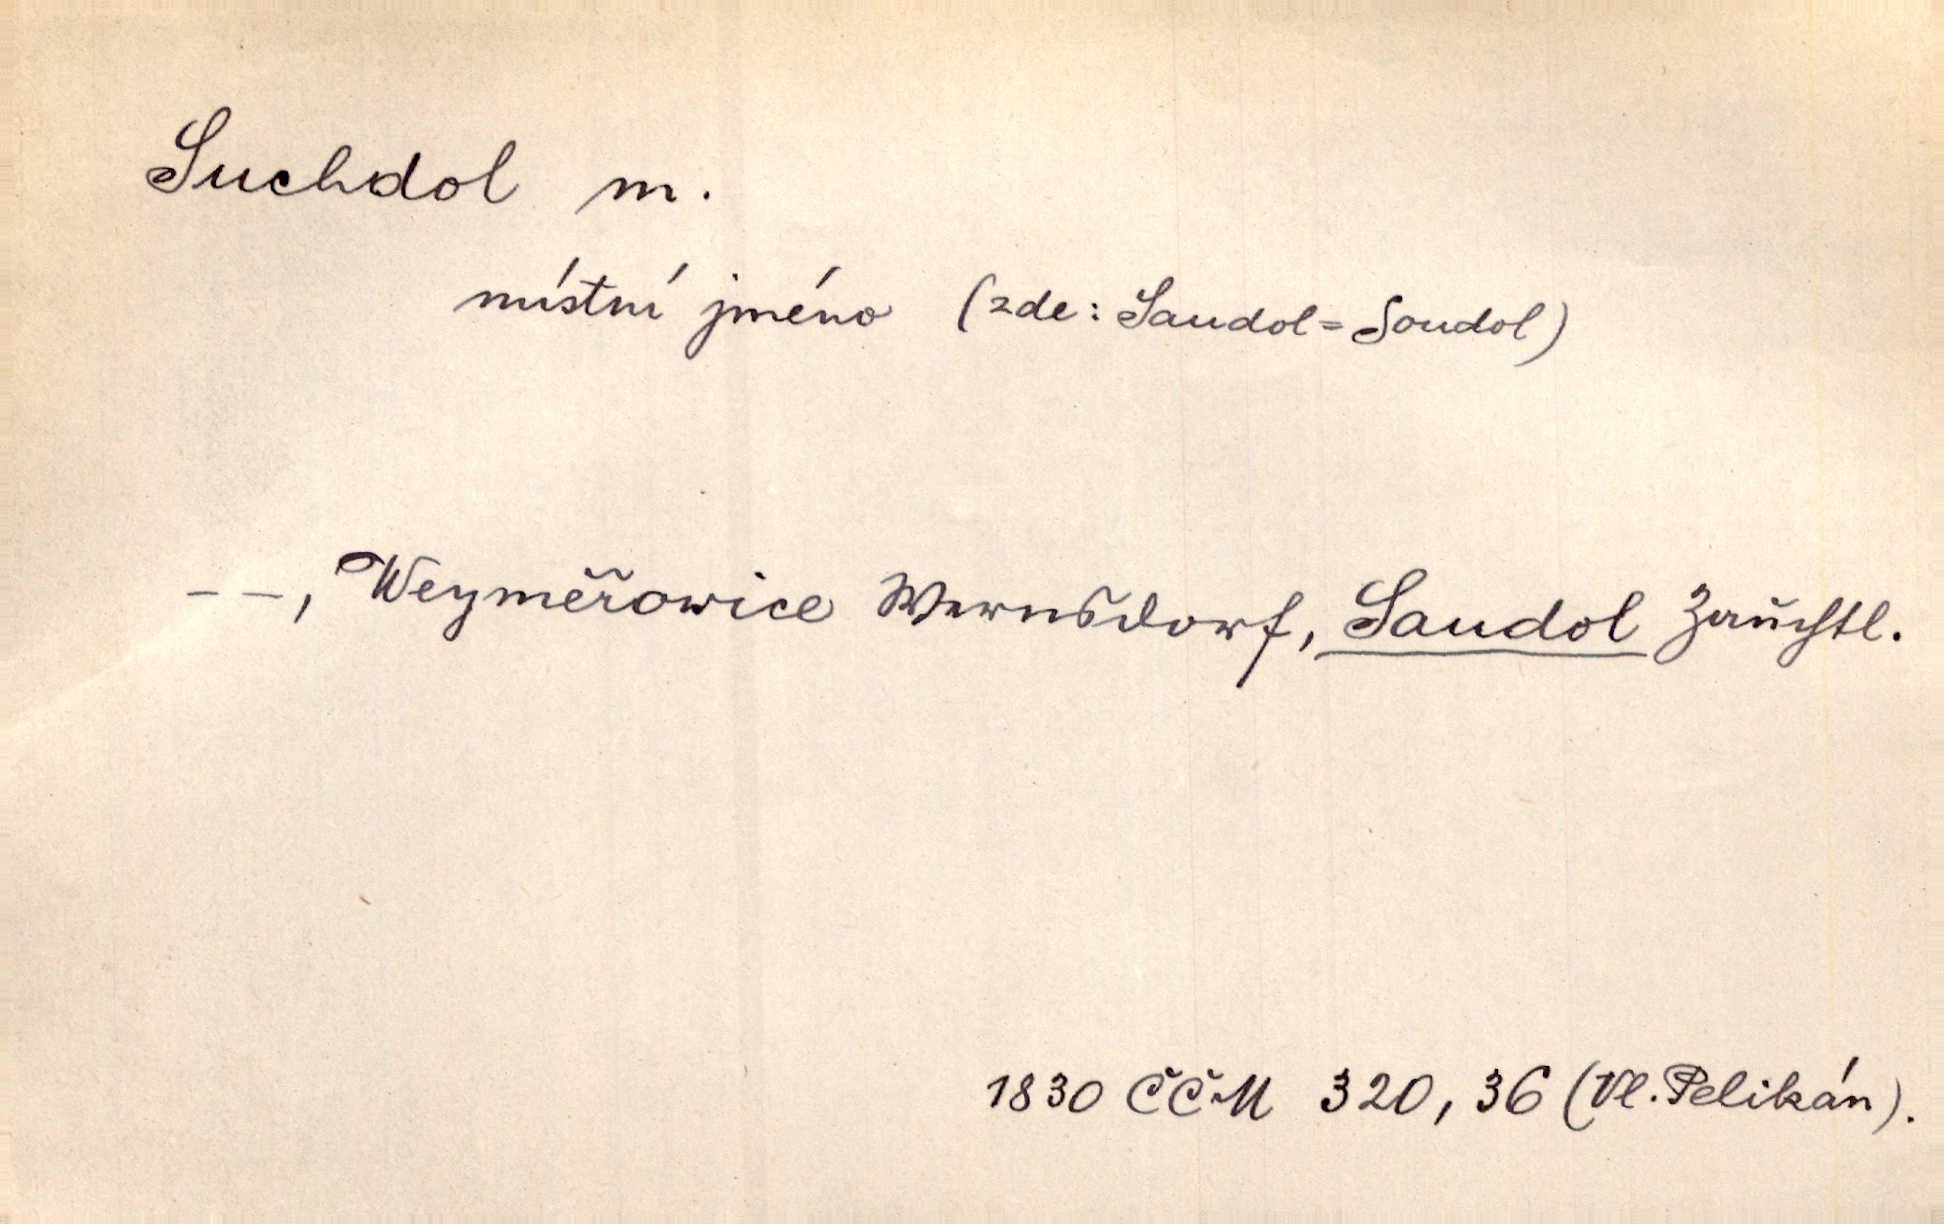 Suchdol m.
místní jméno (zde: Saudol = Soudol)
– –, Weyměřowice Wernsdorf, Saudol Zauchtl.
1830 ČČM 320, 36 (Vl. Pelikán).